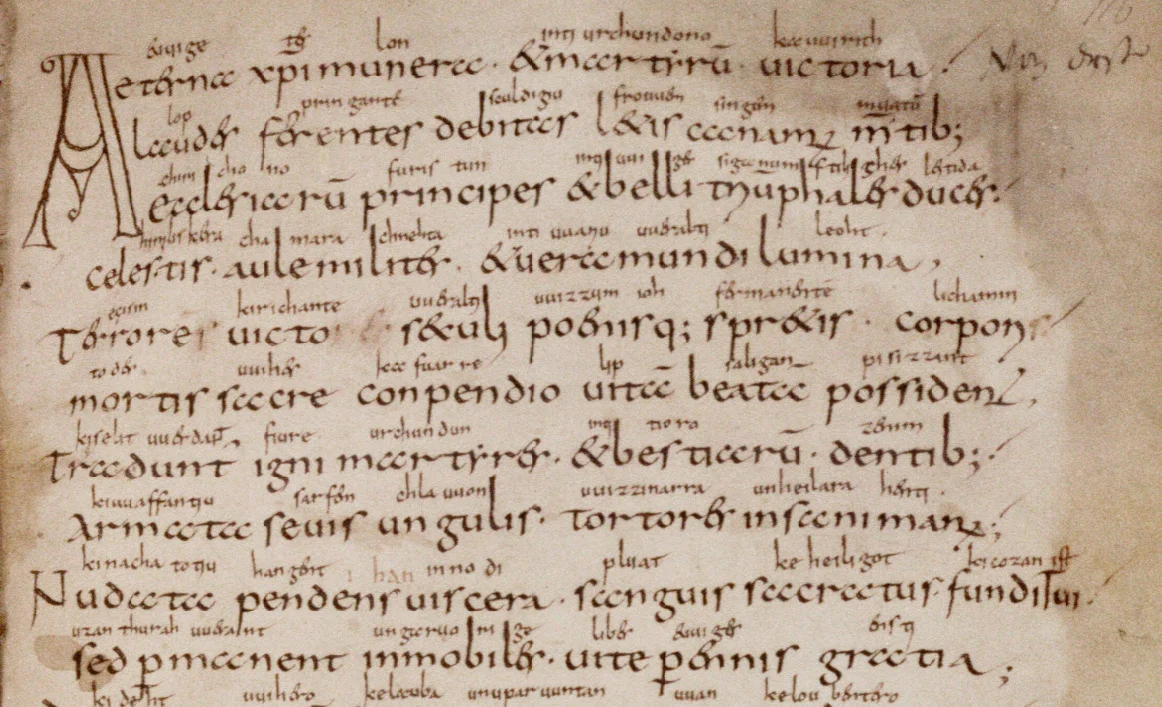 euuige xp̄es lon inti urchundono kauuirich
Aeterna xp̄i munera · & martyrū uictoria
lop pringante sculdigiu frouuen singen muatū
laudes ferentes debitas l&is canam; m̄tib;
chirichono furistun inti uuiges siganumftilicher leitida
aecclesiarū principes & belli triūphales duces·
himiliskera chamara chnehta inti uuariu uueralti leoht ·
celestis · aule milites · & uera mundi lumina ,
egisin kirichante uueralti uuizzum ioh fermanente lichamin
Terrore uicto s&uli poenisq; spr&is · corporis
todes uuihes kafuarre lip saligan pisizzant
mortis sacre conpendio uitā beatā possident ,
kiselit uuerdant fiure urchundun inti tioro zenim
Traduntur igni martyres · & bestiarū · dentib; ·
kiuuaffantiu sarfen chlauuon uuizzinarra unheilara henti ·
Armata seuis ungulis · tortores insani manus;
kinachatotiu hangent innodi pluat keheiligot kicozan ist
Nudata pendens uiscera · sanguis sacratus · funditur ·
uzan thurah uuerant ungiruorige libes euuiges ensti
sed pmanent inmobiles · uite pennis gratia ;
kidehit uuihero kelauba unuparuuntan uuan keloubentero